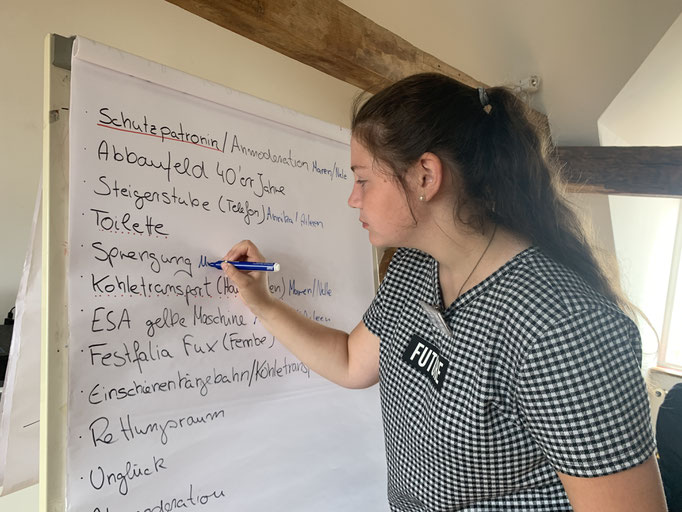 Schutzpatronin/Anmoderation Maren/Nele
Abbaufeld 40'er Jahre
Steigerstube (Telefon) Annika/Aileen
Toilette
Sprengung
Kohletransport (Ha en) Maren/Nele
ESA gelbe Maschine Aileen
Festfalia Fux (Fembe)
Einschienenhängebahn/Kohletransp
Rettungsraum
Unglück
moderation
FUTURE